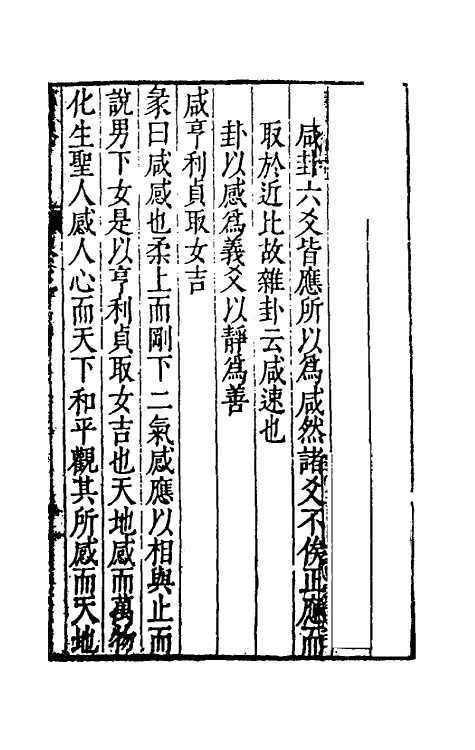 咸卦六爻皆應所以爲咸然諸爻不俟正應而
取於近比故雜卦云咸速也
卦以感爲義爻以靜爲善
咸亨利貞取女吉
彖曰咸感也柔上而剛下二氣感應以相與止而
說男下女是以亨利貞取女吉也天地感而萬物
化生聖人感人心而天下和平觀其所感而天地